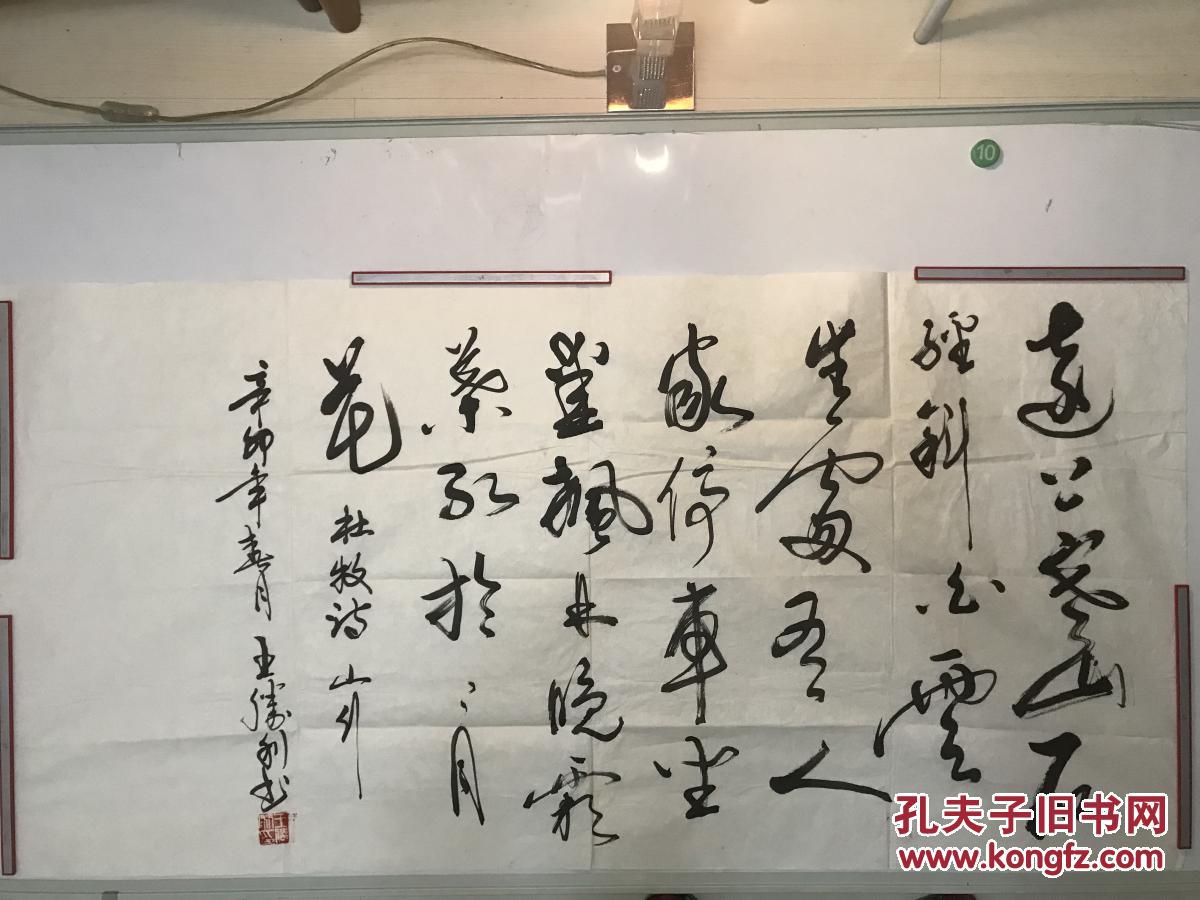 10
遠上寒山石
經斜白雲
生處有人
家停車坐
愛楓林晚霜
葉紅於二月
花 杜牧诗 山行
辛卯年春月 王勝利书
孔夫子旧书网
www.kongfz.com